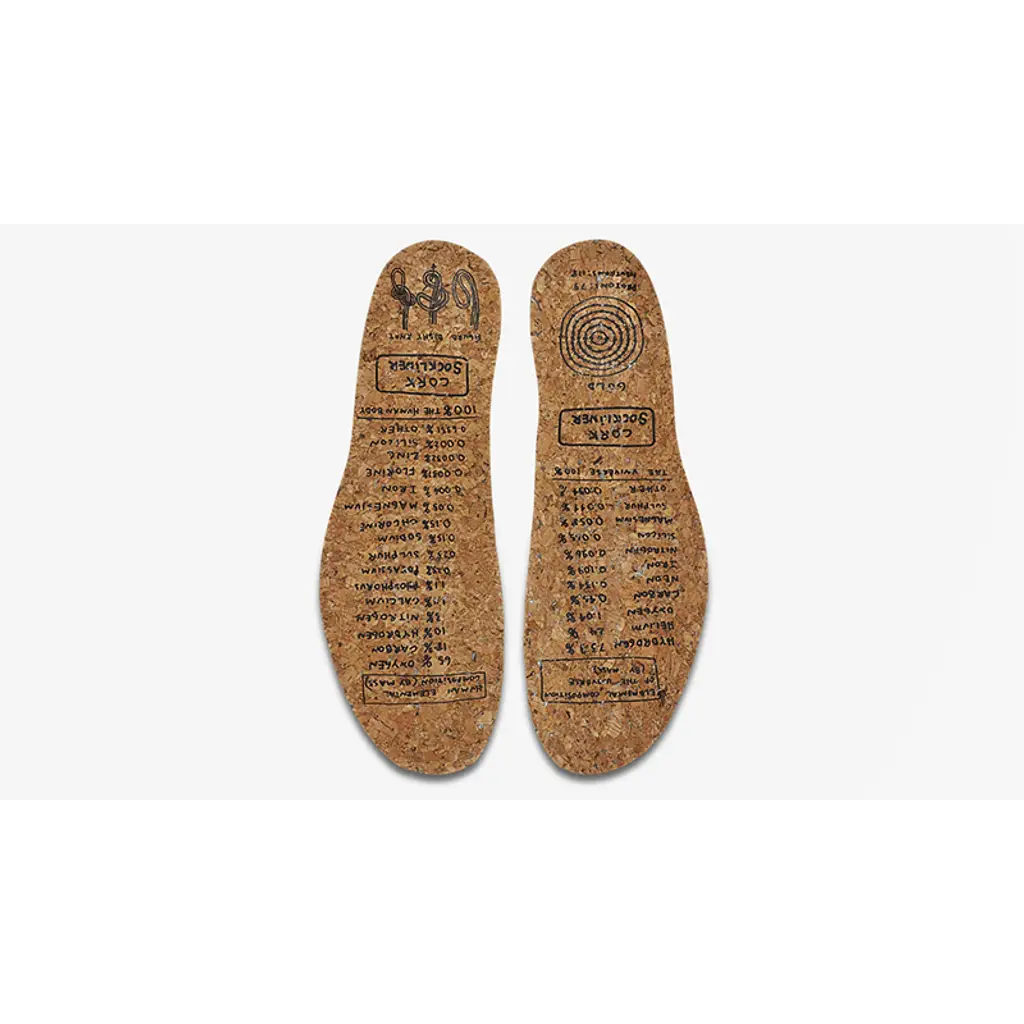 ELEMENTAL COMPOSITION
OF THE UNIVERSE
(BY MASS)
HYDROGEN 73.9%
HELIUM 24%
OXYGEN 1.04%
CARBON 0.45%
NEON 0.134%
IRON 0.109%
NITROGEN 0.096%
SILICON 0.065%
MAGNESIUM 0.058%
SULPHUR 0.044%
OTHER
THE UNIVERSE 100%
CORK
SOCKLINER
GOLD
PROTONS: 79
NEUTRONS: 118
HUMAN ELEMENTAL
COMPOSITION (BY MASS)
65% OXYGEN
18% CARBON
10% HYDROGEN
3% NITROGEN
CALCIUM
1.1% PHOSPHORUS
POTASSIUM
0.25% SULPHUR
0.15% SODIUM
0.15% CHLORINE
0.05% MAGNESIUM
0.006% IRON
0.0037% FLORINE
0.0032% ZINC
0.002% SILICON
OTHER
100% THE HUMAN BODY
CORK
SOCKLINER
FIGURE EIGHT KNOT